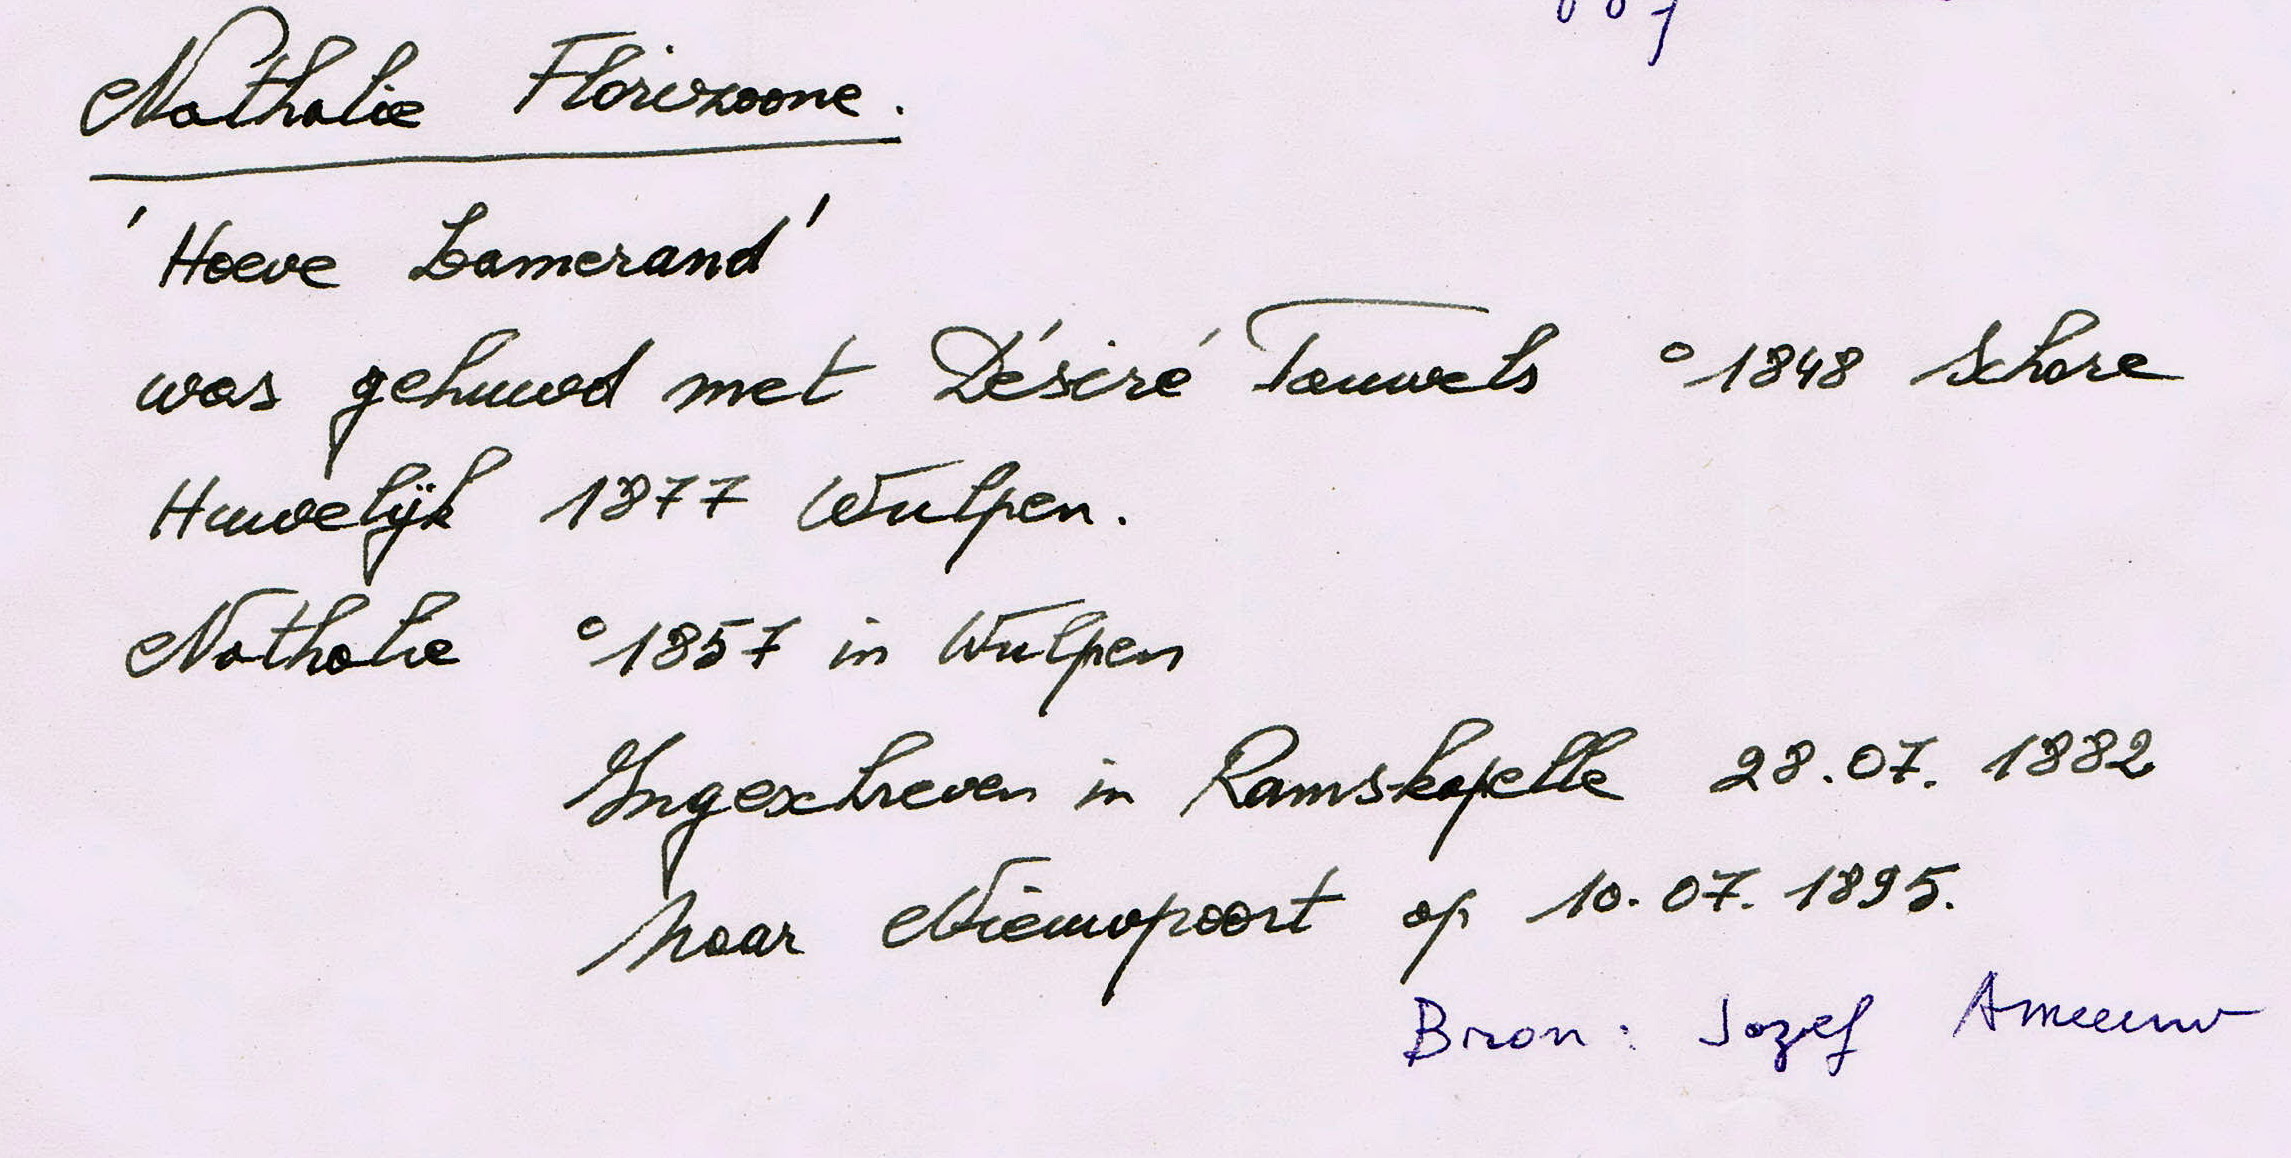 Nathalie Florizoone.
'Hoeve Lamerand'
was gehuwd met Désiré Tauwels °1848 Schore
Huwelijk 1877 Wulpen.
Nathalie °1857 in Wulpen
Ingeschreven in Ramskapelle 28.07.1882
Naar Nieuwpoort op 10.07.1895.
Bron: Jozef Ameeuw